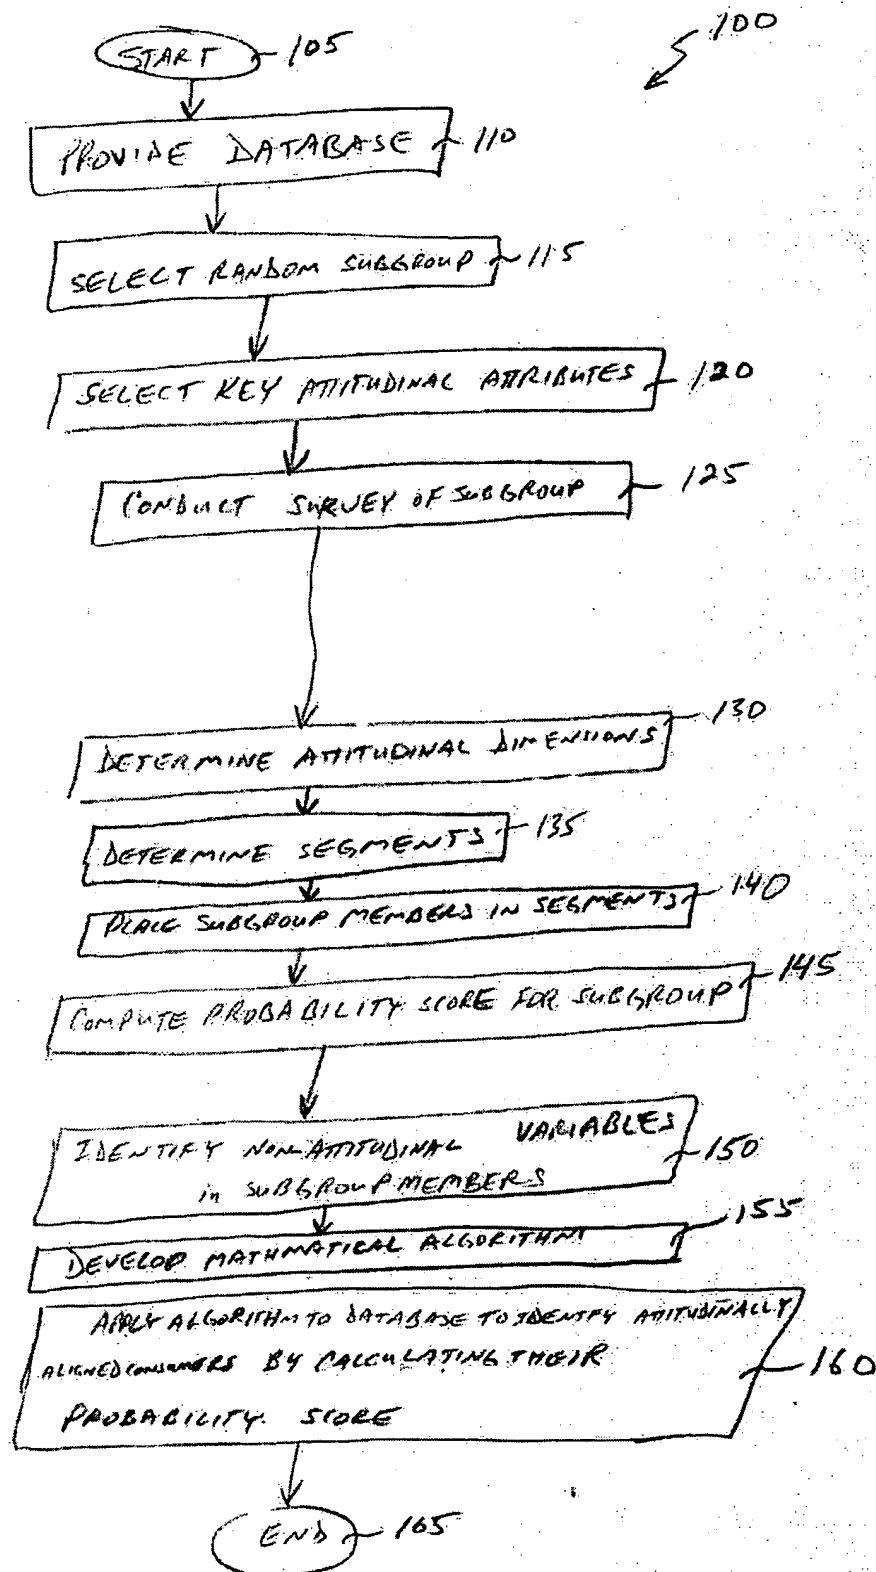 100
START 105
PROVIDE DATABASE 110
SELECT RANDOM SUBGROUP 115
SELECT KEY ATTITUDINAL ATTRIBUTES 120
CONDUCT SURVEY OF SUBGROUP 125
DETERMINE ATTITUDINAL DIMENSIONS 130
DETERMINE SEGMENTS 135
PLACE SUBGROUP MEMBERS IN SEGMENTS 140
COMPUTE PROBABILITY SCORE FOR SUBGROUP 145
IDENTIFY NON-ATTITUDINAL VARIABLES
in SUBGROUP MEMBERS 150
DEVELOP MATHMATICAL ALGORITHM 155
APPLY ALGORITHM TO DATABASE TO IDENTIFY ATTITUDINALLY
ALIGNED CONSUMERS BY CALCULATING THEIR 160
PROBABILITY SCORE
END 165